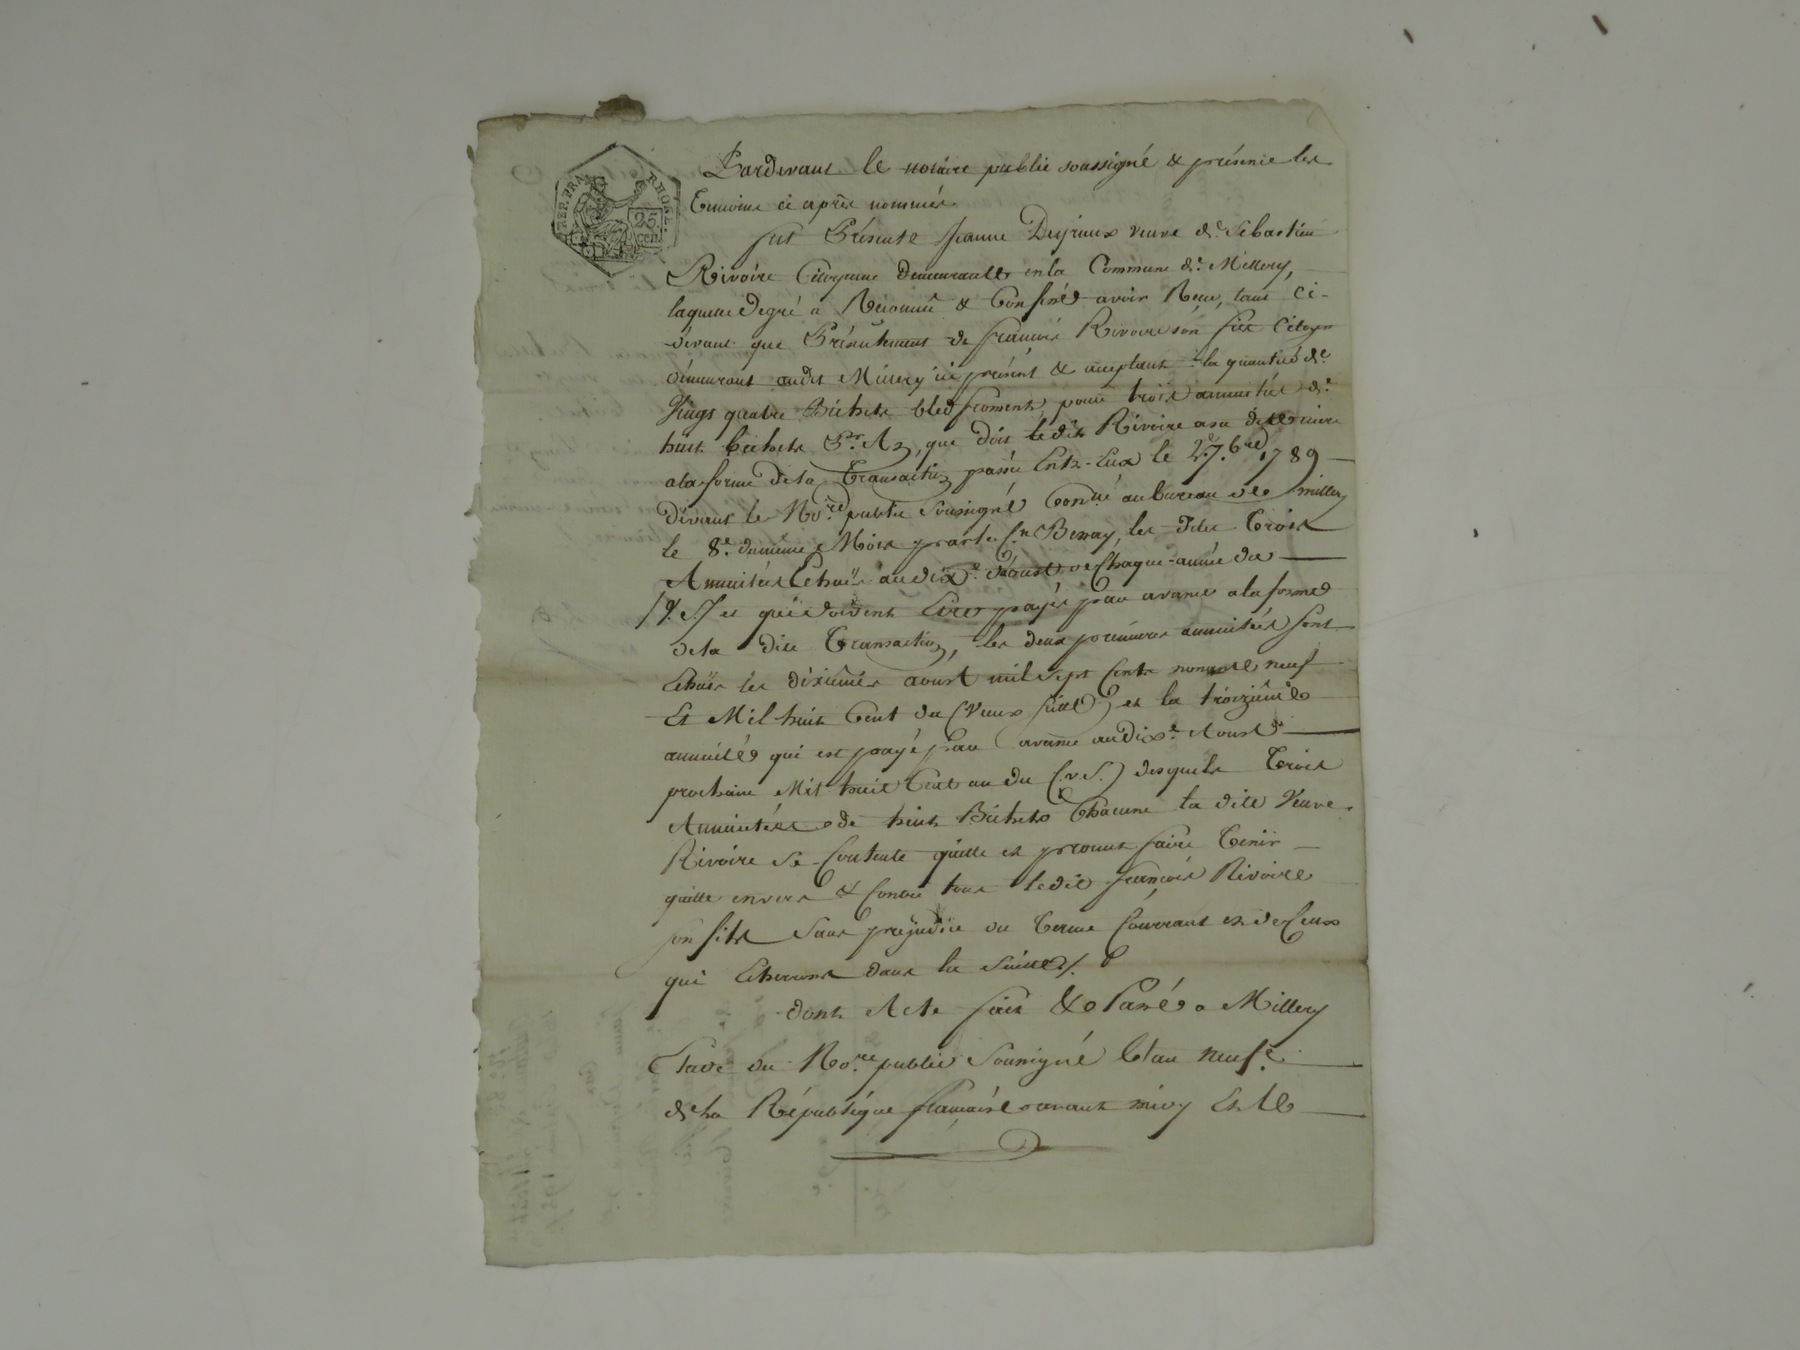 REP. FRA. RHOSE.
25 cen.
Pardevant le notaire public soussigné & présence les
Temoins ci après nommés
fut Présente Jeanne Deyrieux veuve de Sebastien
Rivoire Citoyenne demeurante en la Commune de Millery,
laquelle de gré a Reconnû & Confessé avoir Reçu, tant ci-
devant que Présentement de francois Rivoire son fils Citoyen
demeurant audit Millery ici présent & acceptant la quantité de
Vingt quatre Bichets bled froment pour trois annuités de
huit bichets Pr. An, que doit ledit Rivoire a sa ditte mere
a la forme de la Transaction passée Entr-Eux le 2e. 7.bre 1789
devant le No.re public soussigné Con.lé au bureau de millery
le 8e. du même Mois par le C.n Benay, les dites Trois
Annuités Echuës au dix.e d'aoust de Chaque année du
V. S. et qui doivent Etres payés par avance a la forme
de la dite Transaction, les deux premieres annuités sont
Echuës les dixiêmes aoust mil sept cents nonante neuf
Et Mil huit Cent du (vieux stile) et la troizième
annuité qui est payé par avance au dix.e Aoust
prochain Mil huit Cent un du (v. S.) desquels Trois
Annuités de huit Bichets Chacune la dite Veuve
Rivoire Se Contente quitte et promet faire Tenir
quitte envers & Contre tous ledit françois Rivoire
son fils Sans préjudice du Terme Courrant et de Ceux
qui Echerront dans la Suitte./.
dont Acte fait & Passé a Millery
Etude du No.re public Soussigné L'an neuf.e
de la République francaise avant midy Et le